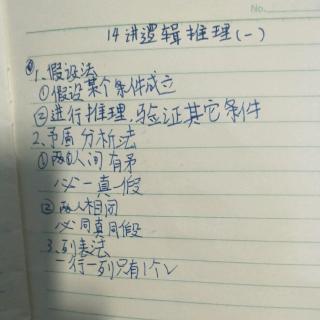 No.
14讲逻辑推理(一)
1、假设法
①假设某个条件成立
②进行推理,验证其它条件
2、矛盾分析法
①两人间有矛
必一真一假
②两人相同
必同真同假
3、列表法
一行一列只有1个√